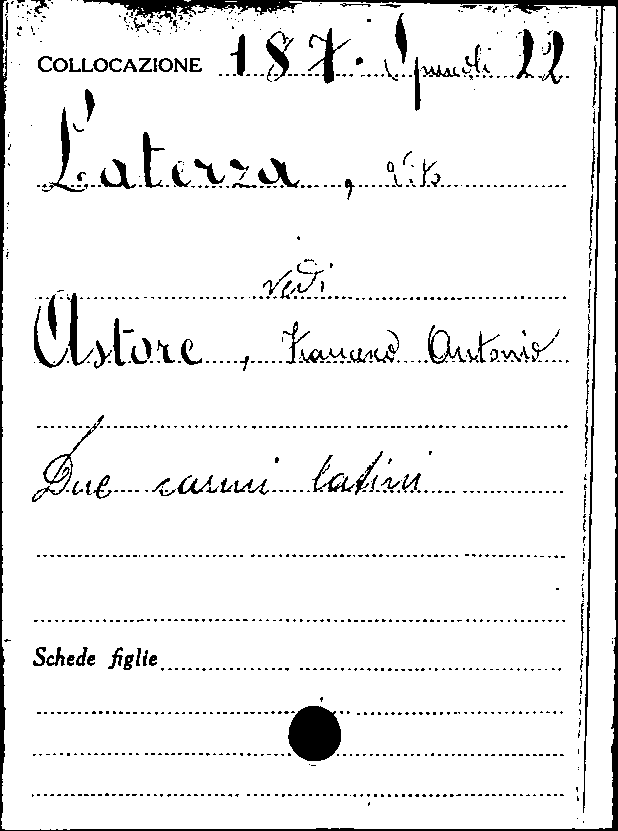 COLLOCAZIONE 187. Spinelli 22
Laterza, Vito
vedi
Astore, Francesco Antonio
Due carmi latini
Schede figlie